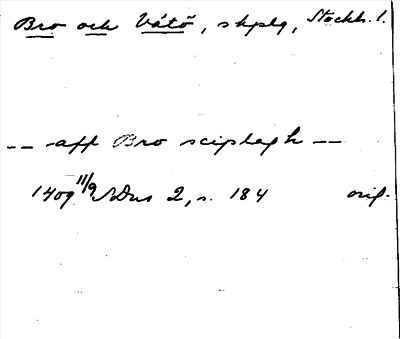 Bro och Vätö, skplg, Stockh. l.
-- aff Bro sciplagh --
1409 11/9 SDns 2, s. 184 orig.